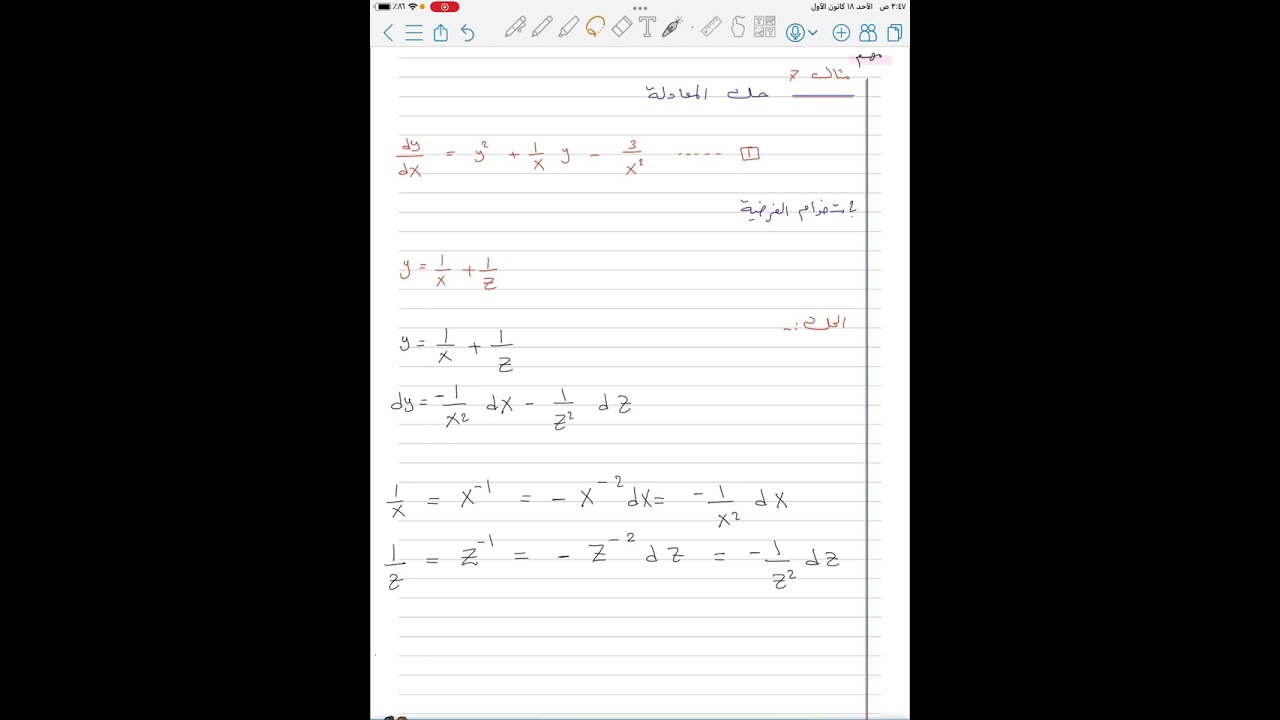 ٢:٤٧ ص الأحد ١٨ كانون الأول
٨٦٪
مهم
مثال 7
حل المعادلة
dy/dx = y² + 1/x y - 3/x² ...... 1
باستخدام الفرضية
y = 1/x + 1/z
الحل :-
y = 1/x + 1/z
dy = -1/x² dx - 1/z² dz
1/x = x⁻¹ = - x⁻² dx = -1/x² dx
1/z = z⁻¹ = - z⁻² dz = -1/z² dz